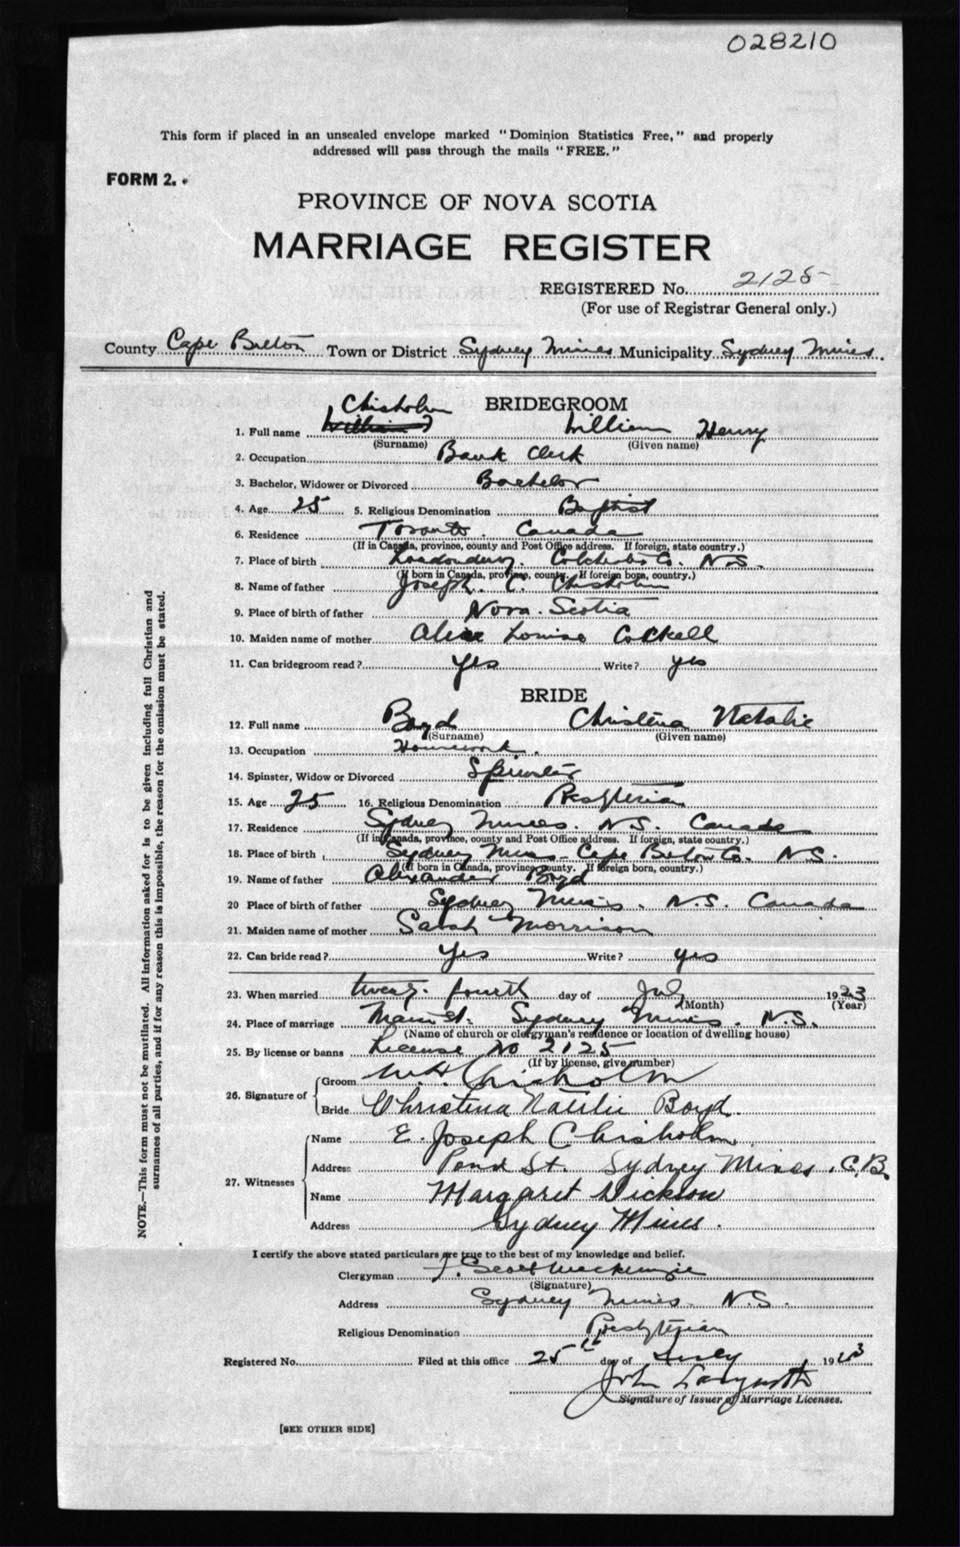 028210
This form if placed in an unsealed envelope marked "Dominion Statistics Free," and properly
addressed will pass through the mails "FREE."
FORM 2.
PROVINCE OF NOVA SCOTIA
MARRIAGE REGISTER
REGISTERED No. 2125
(For use of Registrar General only.)
County Cape Breton Town or District Sydney Mines Municipality Sydney Mines.
BRIDEGROOM
Chisholm
1. Full name William Henry
(Surname) (Given name)
2. Occupation Bank Clerk
3. Bachelor, Widower or Divorced Bachelor
4. Age 25 5. Religious Denomination Baptist
6. Residence Toronto. Canada
(If in Canada, province, county and Post Office address. If foreign, state country.)
7. Place of birth Londonderry. Colchester Co. N.S.
(If born in Canada, province, county. If foreign born, country.)
8. Name of father Joseph. C. Chisholm
9. Place of birth of father Nova. Scotia
10. Maiden name of mother Alice Louise
11. Can bridegroom read? yes Write? yes
BRIDE
12. Full name Boyd Christena Natalie
(Surname) (Given name)
13. Occupation Housework.
14. Spinster, Widow or Divorced Spinster
15. Age 25 16. Religious Denomination Presbyterian
17. Residence Sydney Mines. N.S. Canada
(If in Canada, province, county and Post Office address. If foreign, state country.)
18. Place of birth Sydney Mines Cape Breton Co. N.S.
(If born in Canada, province county. If foreign born, country.)
19. Name of father Alexander Boyd
20 Place of birth of father Sydney Mines. N.S. Canada
21. Maiden name of mother Sarah Morrison
22. Can bride read? Yes Write? yes
23. When married twenty. fourth day of July 1923
(Month) (Year)
24. Place of marriage Main St. Sydney Mines. N.S.
(Name of church or clergyman's residence or location of dwelling house)
25. By license or banns License No 2125
(If by license, give number)
26. Signature of Groom W.H. Chisholm
Bride Christena Natalie Boyd.
27. Witnesses Name E. Joseph Chisholm.
Address Pond St. Sydney Mines. C.B.
Name Margaret Dickson
Address Sydney Mines.
I certify the above stated particulars are true to the best of my knowledge and belief.
Clergyman J. Scott Mackenzie
(Signature)
Address Sydney Mines. N.S.
Religious Denomination Presbyterian
Registered No. Filed at this office 25th day of July 1923
John
Signature of Issuer of Marriage Licenses.
[SEE OTHER SIDE]
NOTE.—This form must not be mutilated. All information asked for is to be given including full Christian and
surnames of all parties, and if for any reason this is impossible, the reason for the omission must be stated.